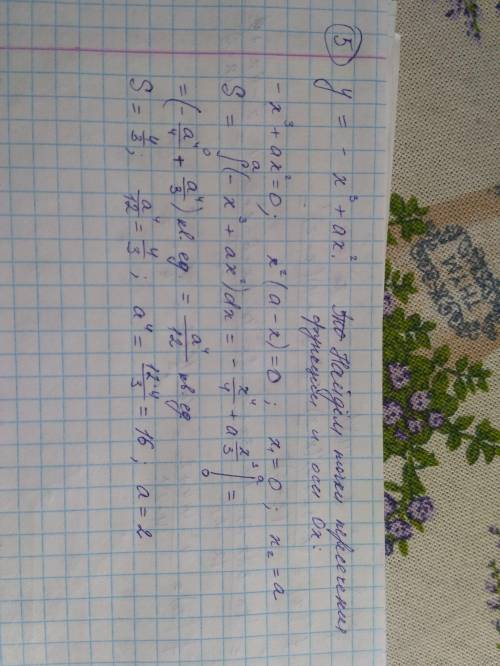 5 y = - x³ + ax². Найдём точки пересечения
функции и оси Ox:
- x³ + ax² = 0; x²(a - x) = 0; x₁ = 0; x₂ = a
S = ∫₀ᵃ (- x³ + ax²)dx = - x⁴/4 + a x³/3 ]₀ᵃ =
= (- a⁴/4 + a⁴/3) кв. ед. = a⁴/12 кв. ед
S = 4/3; a⁴/12 = 4/3; a⁴ = 12·4/3 = 16; a = 2